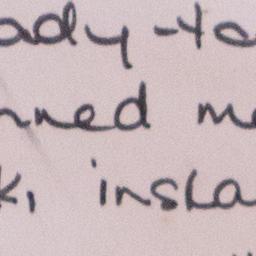 ady-to
nned me
k, insta